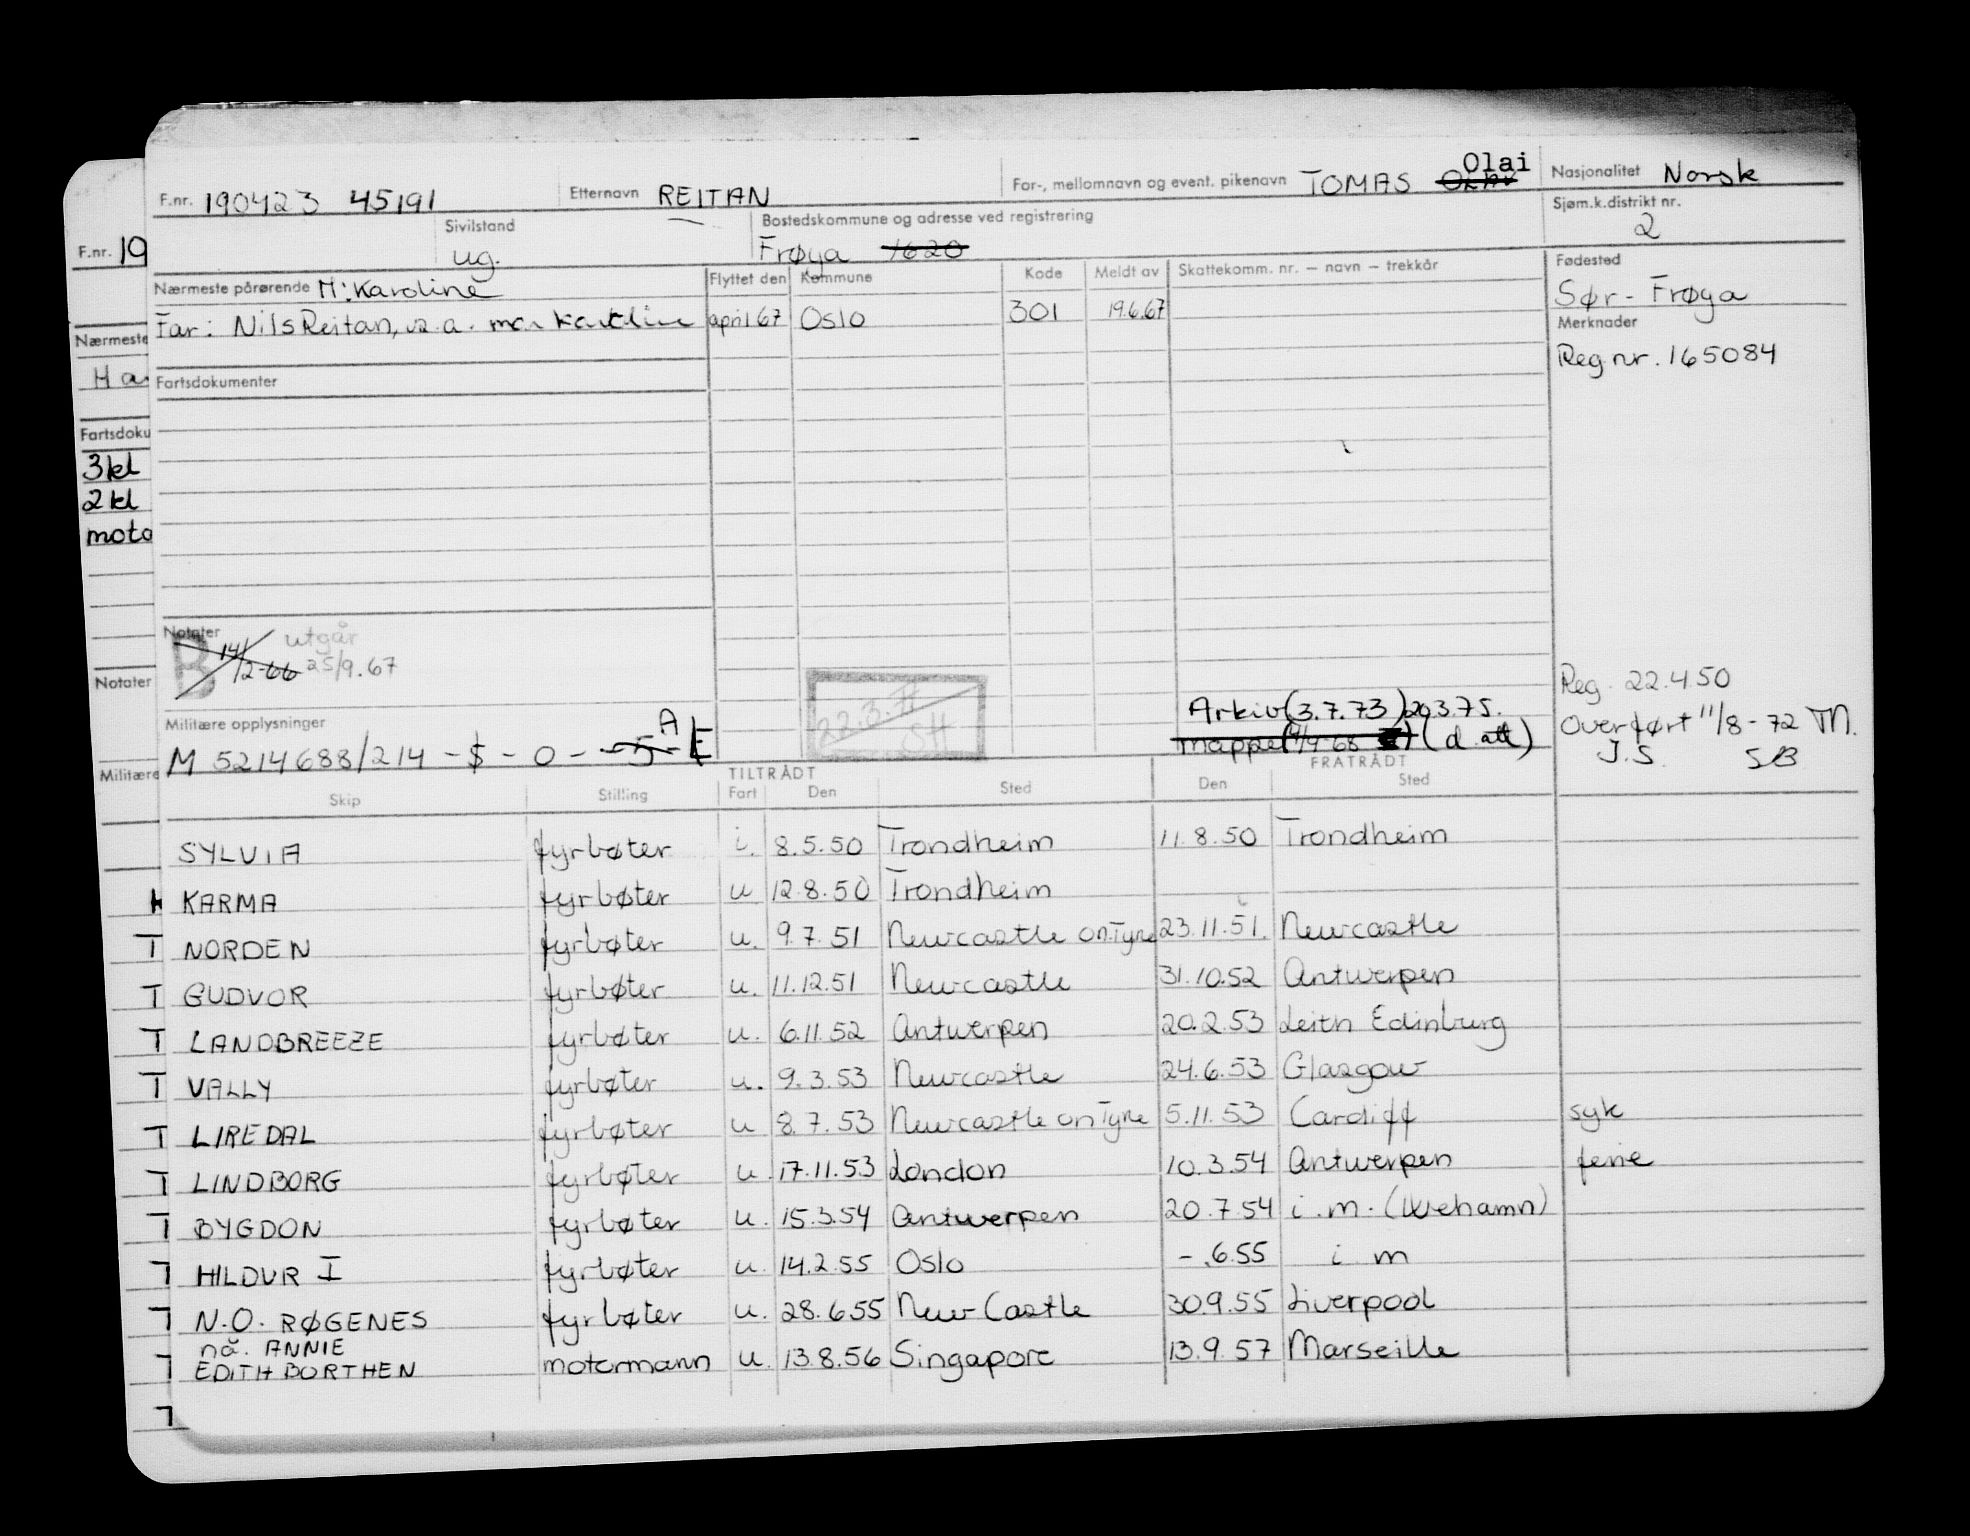 F.nr. 190423 45191 Etternavn REITAN For-, mellomnavn og event. pikenavn TOMAS Olai Nasjonalitet Norsk
Sivilstand ug. Bostedskommune og adresse ved registrering Frøya 1620 Sjøm.k.distrikt nr. 2
Nærmeste pårørende M: Karoline Flyttet den Kommune Kode Meldt av Skattekomm. nr. – navn – trekkår Fødested Sør-Frøya
Far: Nils Reitan, april 67 Oslo 301 19.6.67
Merknader
Reg nr. 165084
Fartsdokumenter
Notater
B 14/2-66 utgår 25/9.67
22.3. SH
Arkiv (3.7.73) 20.3.75.
mappe (d. att)
Reg. 22.4.50
Overført 11/8-72 TM.
J.S. SB
Militære opplysninger
M 5214688/214 - $ - 0 - 5 A E
TILTRÅDT FRATRÅDT
Skip Stilling Fart Den Sted Den Sted
SYLVIA fyrbøter i. 8.5.50 Trondheim 11.8.50 Trondheim
KARMA fyrbøter u 12.8.50 Trondheim
NORDEN fyrbøter u. 9.7.51 Newcastle on Tyne 23.11.51. Newcastle
GUDVOR fyrbøter u. 11.12.51 Newcastle 31.10.52 Antwerpen
LANDBREEZE fyrbøter u. 6.11.52 Antwerpen 20.2.53 Leith Edinburg
VALLY fyrbøter u. 9.3.53 Newcastle 24.6.53 Glasgow
LIREDAL fyrbøter u 8.7.53 Newcastle on Tyne 5.11.53 Cardiff syk
LINDBORG fyrbøter u. 17.11.53 London 10.3.54 Antwerpen ferie
BYGDON fyrbøter u. 15.3.54 Antwerpen 20.7.54 i.m. (Wehamn)
HILDUR I fyrbøter u. 14.2.55 Oslo -.6.55 i m
N.O. RØGENES fyrbøter u. 28.6.55 New Castle 30.9.55 Liverpool
nå. ANNIE
EDITH BORTHEN motormann u. 13.8.56 Singapore 13.9.57 Marseille
F.nr. 19
Nærmeste
Ha
Fartsdoku
3kl
2kl
moto
Notater
Militære